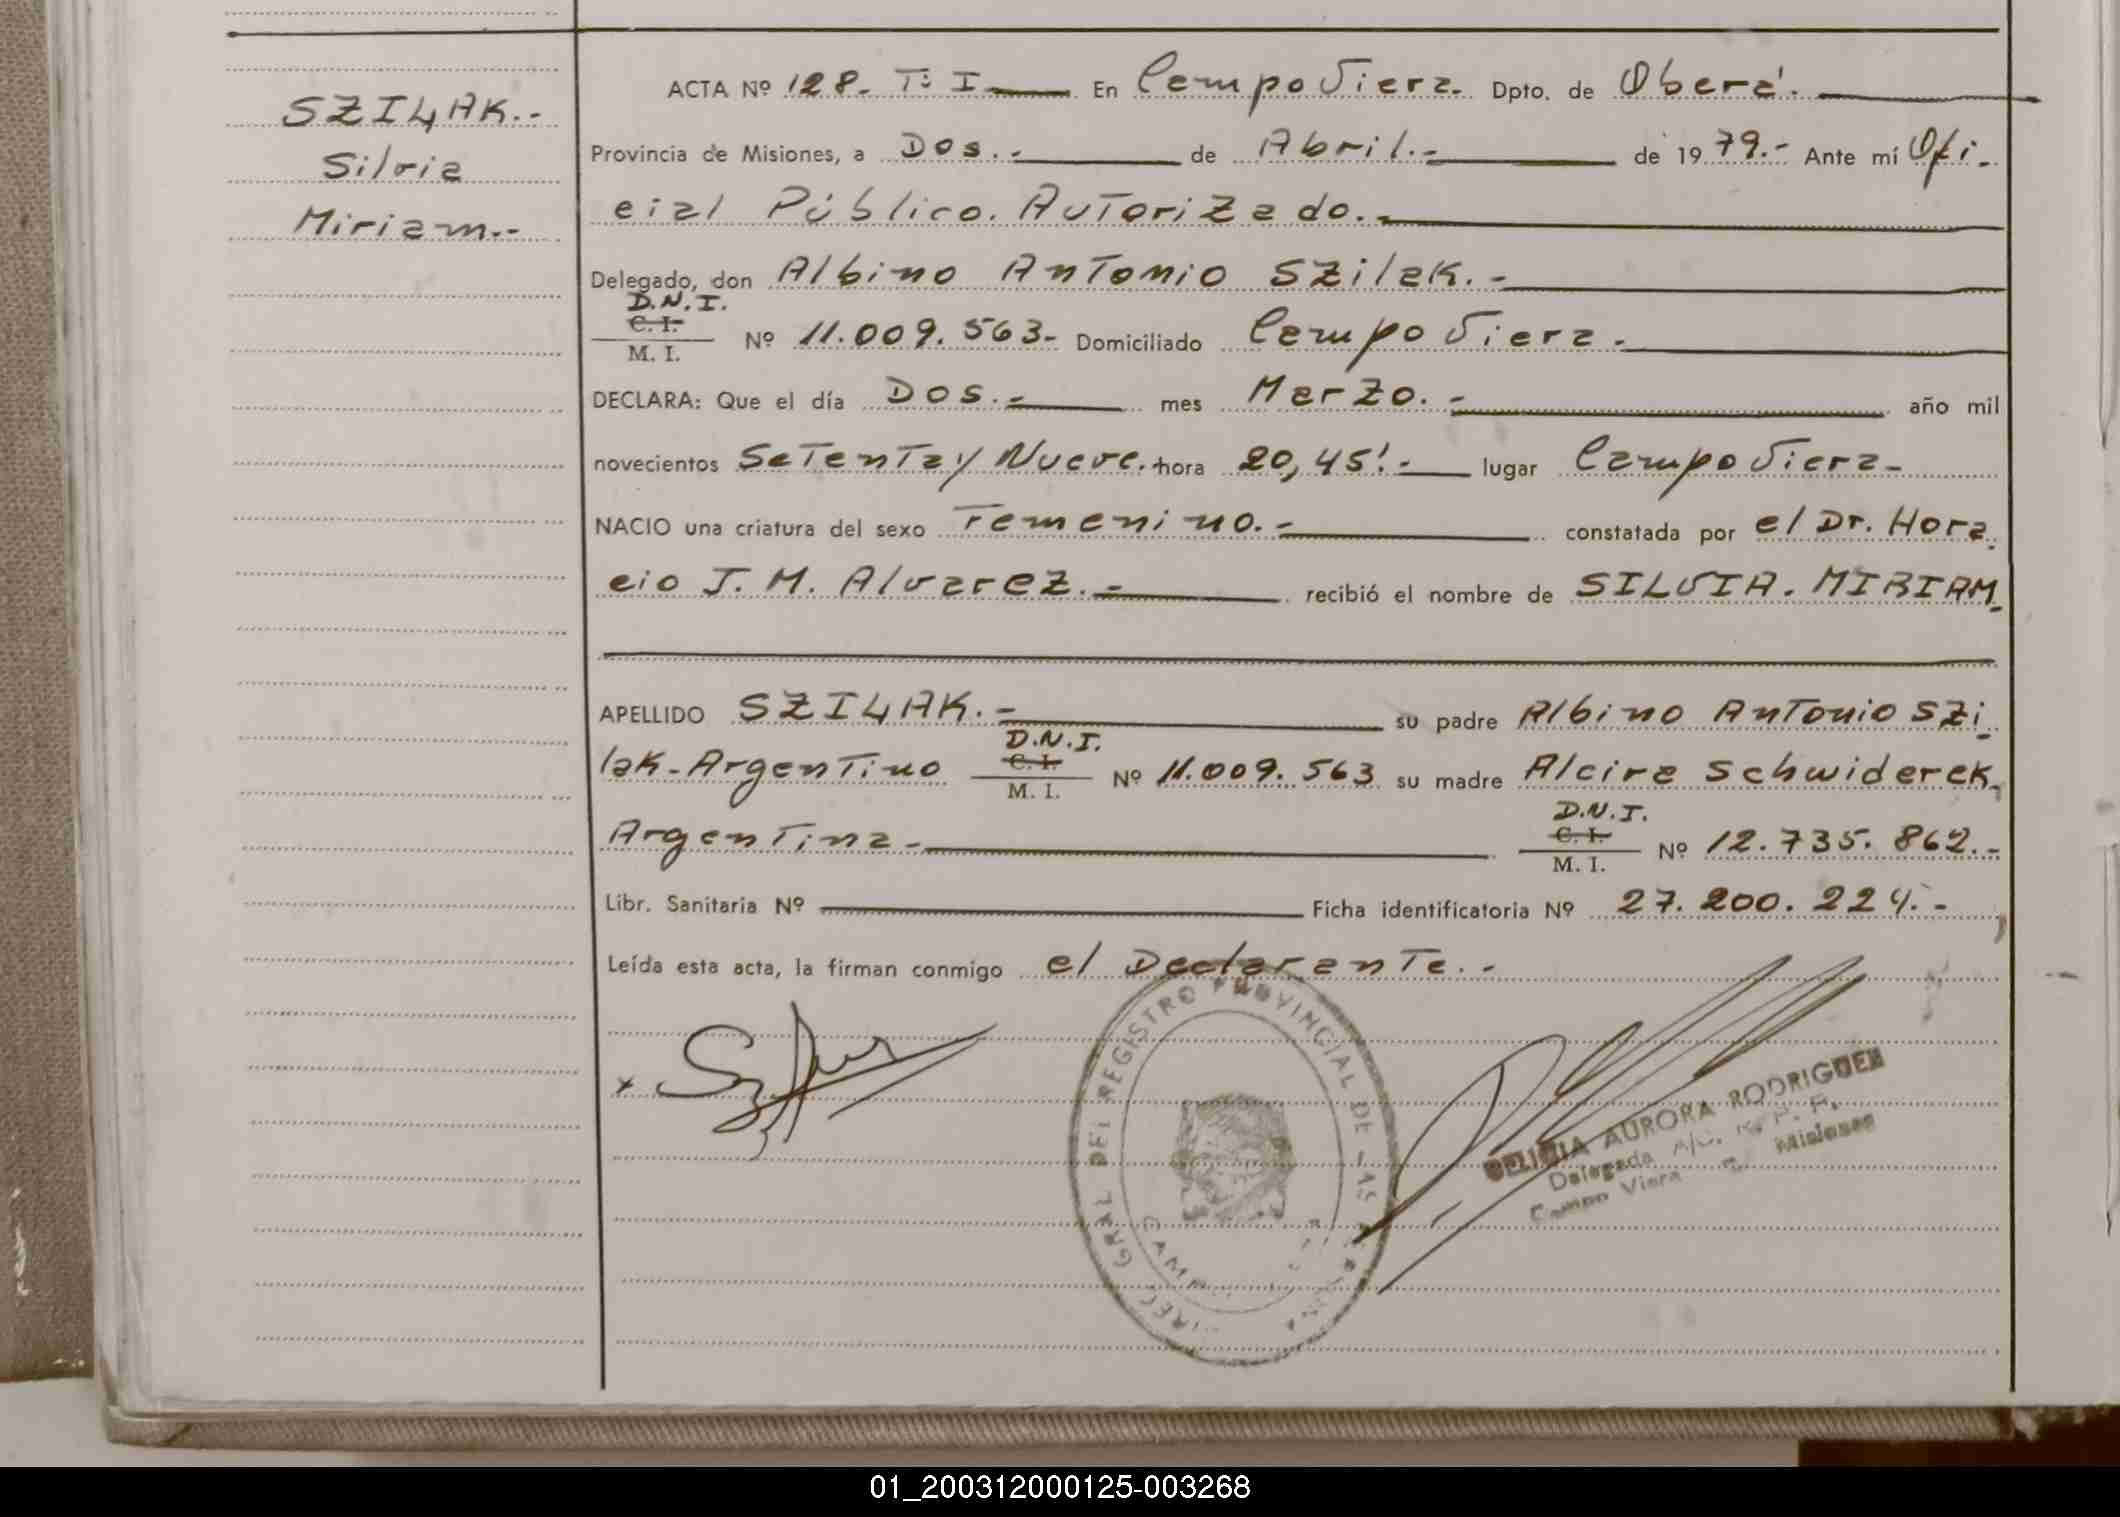 SZILAK.-
Silvia
Miriam.-
ACTA Nº 128.- T: I En Campo Viera.- Dpto. de Oberá.-
Provincia de Misiones, a Dos.- de Abril.- de 1979.- Ante mí Ofi-
cial Público. Autorizado.-
Delegado, don Albino Antonio Szilak.-
D.N.I.
C. I.
M. I. Nº 11.009.563- Domiciliado Campo Viera.-
DECLARA: Que el día Dos.- mes Marzo.- año mil
novecientos Setenta y Nueve.- hora 20,45'.- lugar Campo Viera-
NACIO una criatura del sexo Femenino.- constatada por el Dr. Hora-
cio J. M. Alvarez.- recibió el nombre de SILVIA. MIRIAM.-
APELLIDO SZILAK.- su padre Albino Antonio Szi-
lak-Argentino D.N.I. C. I. M. I. Nº 11.009.563 su madre Alcira Schwiderek,
Argentina- D.N.I. C. I. M. I. Nº 12.735.862.-
Libr. Sanitaria Nº Ficha identificatoria Nº 27.200.224.-
Leída esta acta, la firman conmigo el Declarante.-
GRAL DEL REGISTRO PROVINCIAL DE LAS
DELICIA AURORA RODRIGUEZ
Delegada
Campo Viera Misiones
01_200312000125-003268